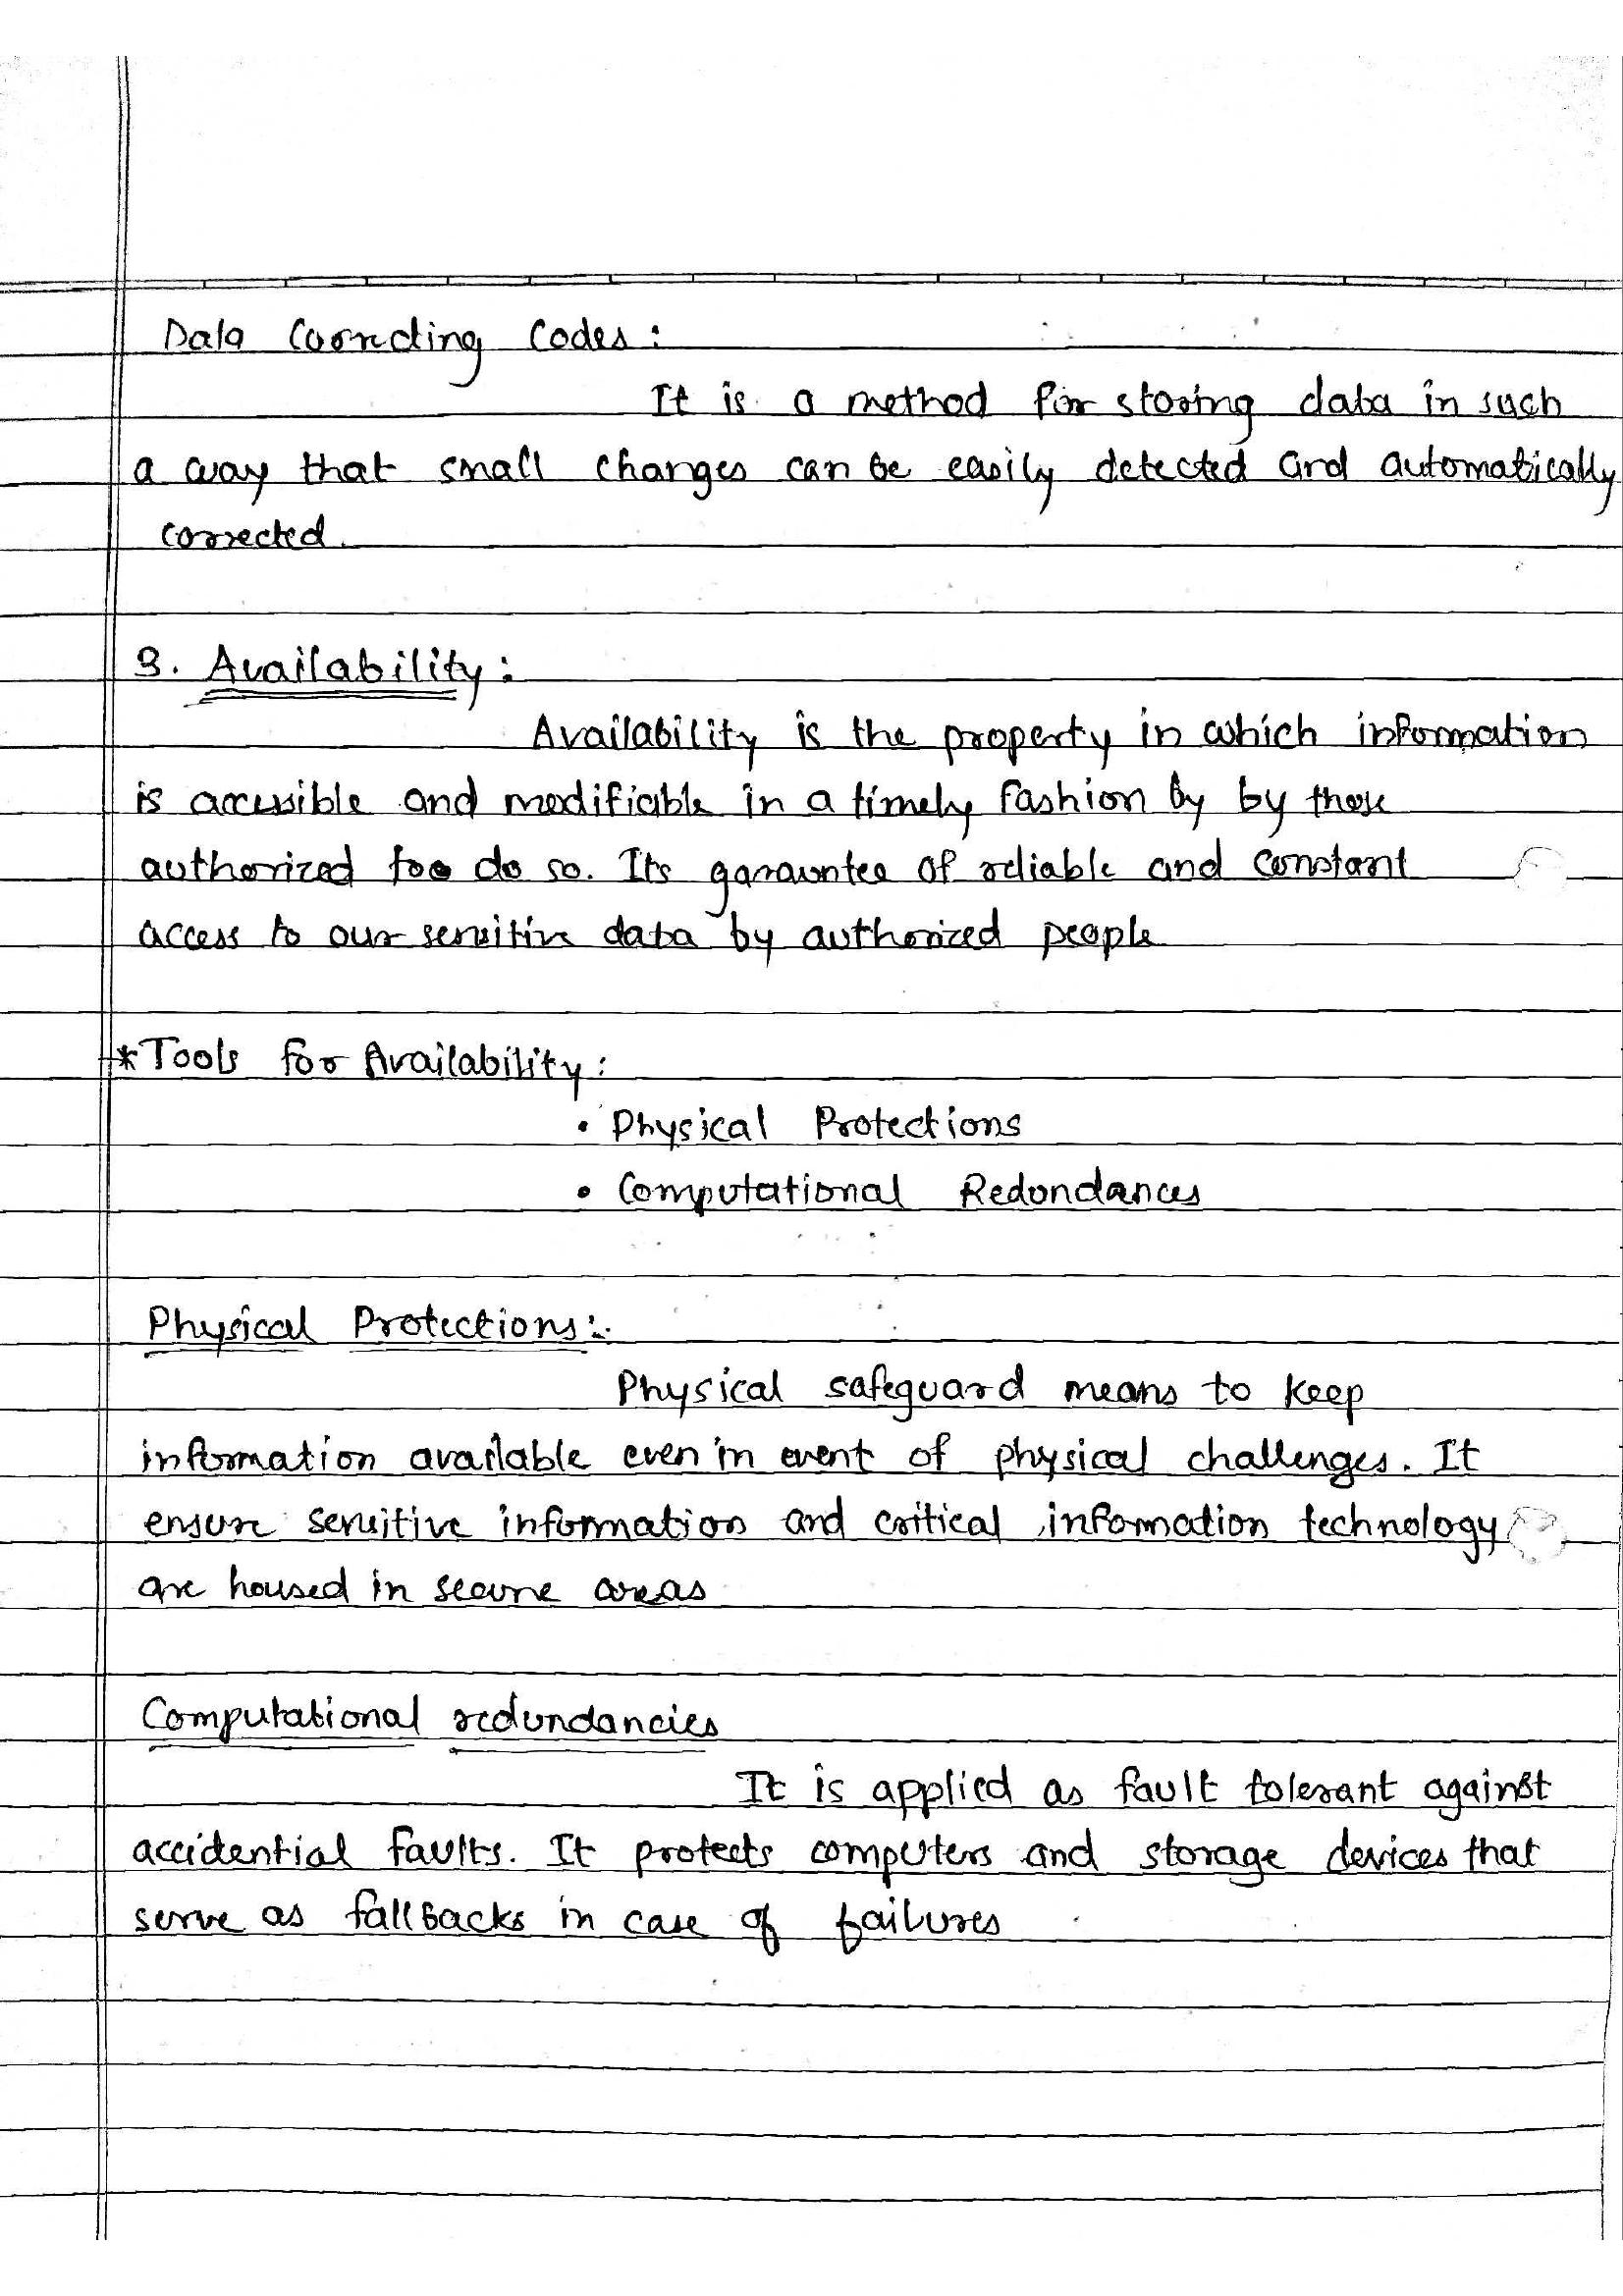 Data Coorecting Codes:
It is a method for storing data in such
a way that small changes can be easily detected and automatically
corrected.
3. Availability:
Availability is the property in which information
is accessible and modificible in a timely fashion by by those
authorized too do so. Its garauntee of reliable and constant
access to our sensitive data by authorized people
*Tools for Availability:
• Physical Protections
• Computational Redundances
Physical Protections:-
Physical safeguard means to keep
information available even in event of physical challenges. It
ensure sensitive information and critical information technology
are housed in secure areas
Computational redundancies
It is applied as fault tolerant against
accidential faults. It protects computers and storage devices that
serve as fallbacks in case of failures